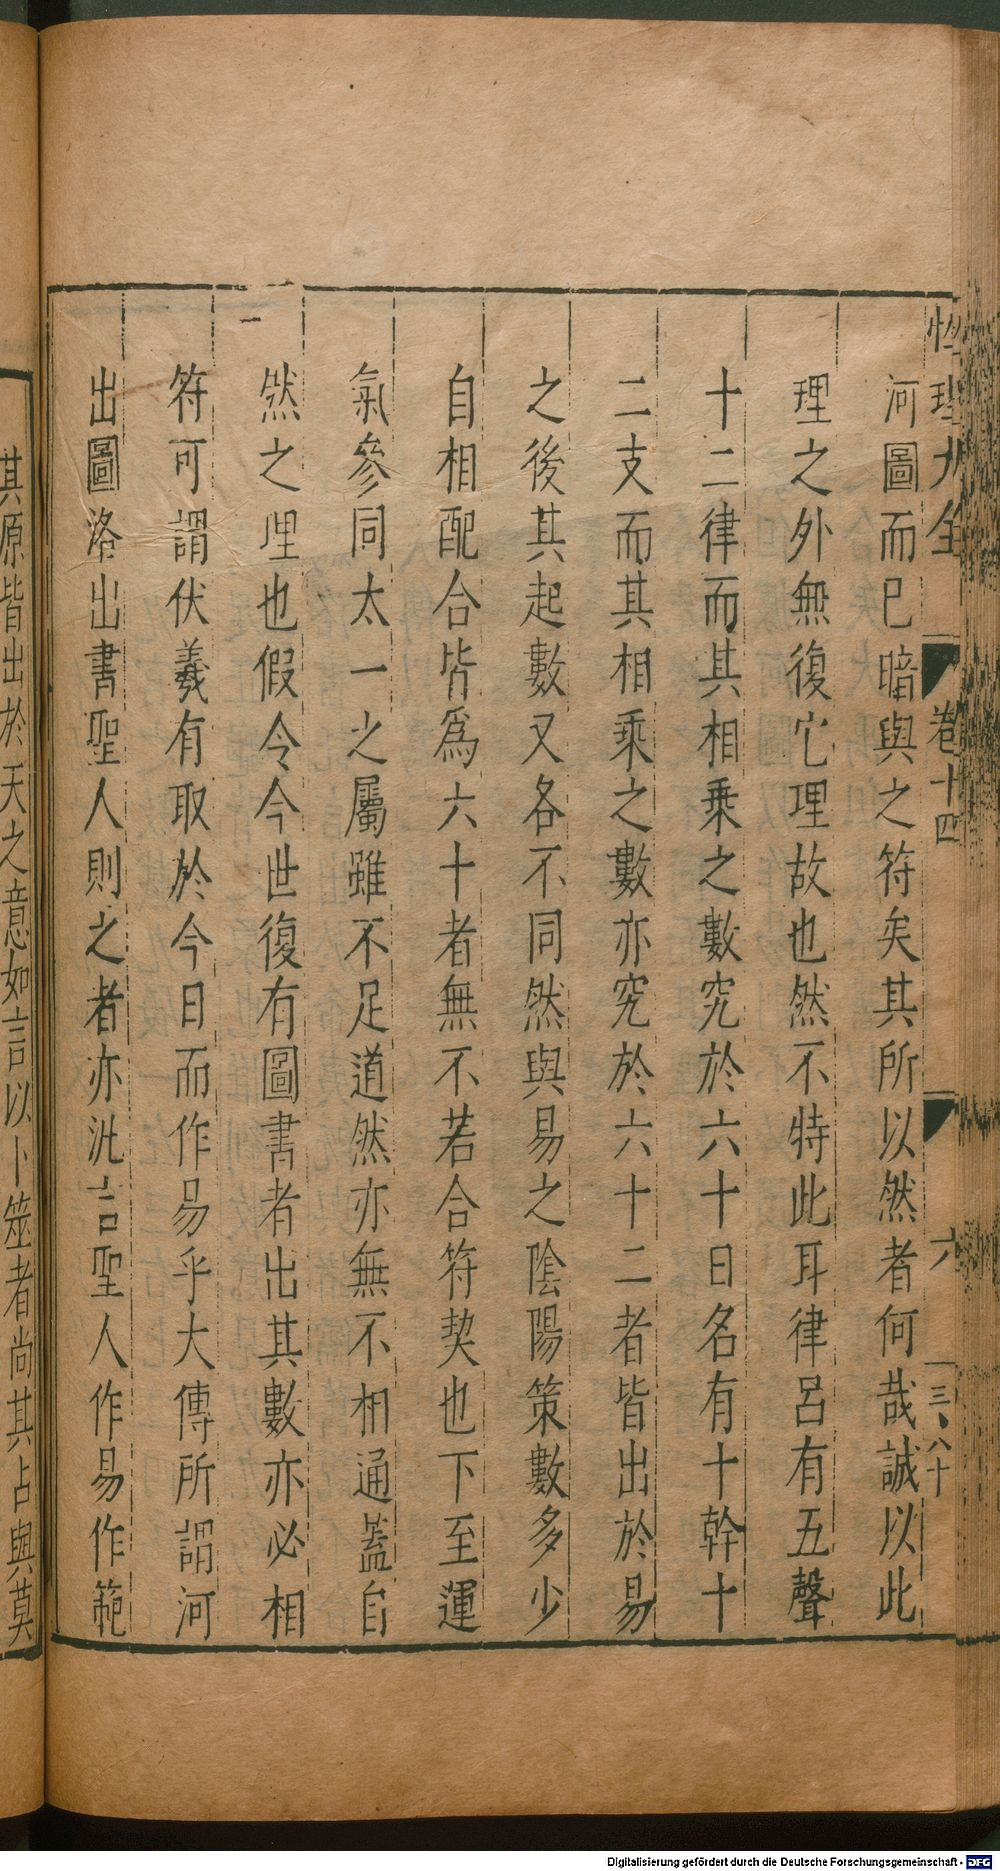 性理大全 卷十四 六 三、八十
河圖而已暗與之符矣其所以然者何哉誠以此
理之外無復它理故也然不特此耳律呂有五聲
十二律而其相乘之數究於六十日名有十幹十
二支而其相乘之數亦究於六十二者皆出於易
之後其起數又各不同然與易之陰陽策數多少
自相配合皆爲六十者無不若合符契也下至運
氣參同太一之屬雖不足道然亦無不相通蓋自
然之理也假令今世復有圖書者出其數亦必相
符可謂伏羲有取於今日而作易乎大傳所謂河
出圖洛出書聖人則之者亦汎言聖人作易作範
其原皆出於天之意如言以卜筮者尚其占與莫
Digitalisierung gefördert durch die Deutsche Forschungsgemeinschaft - DFG